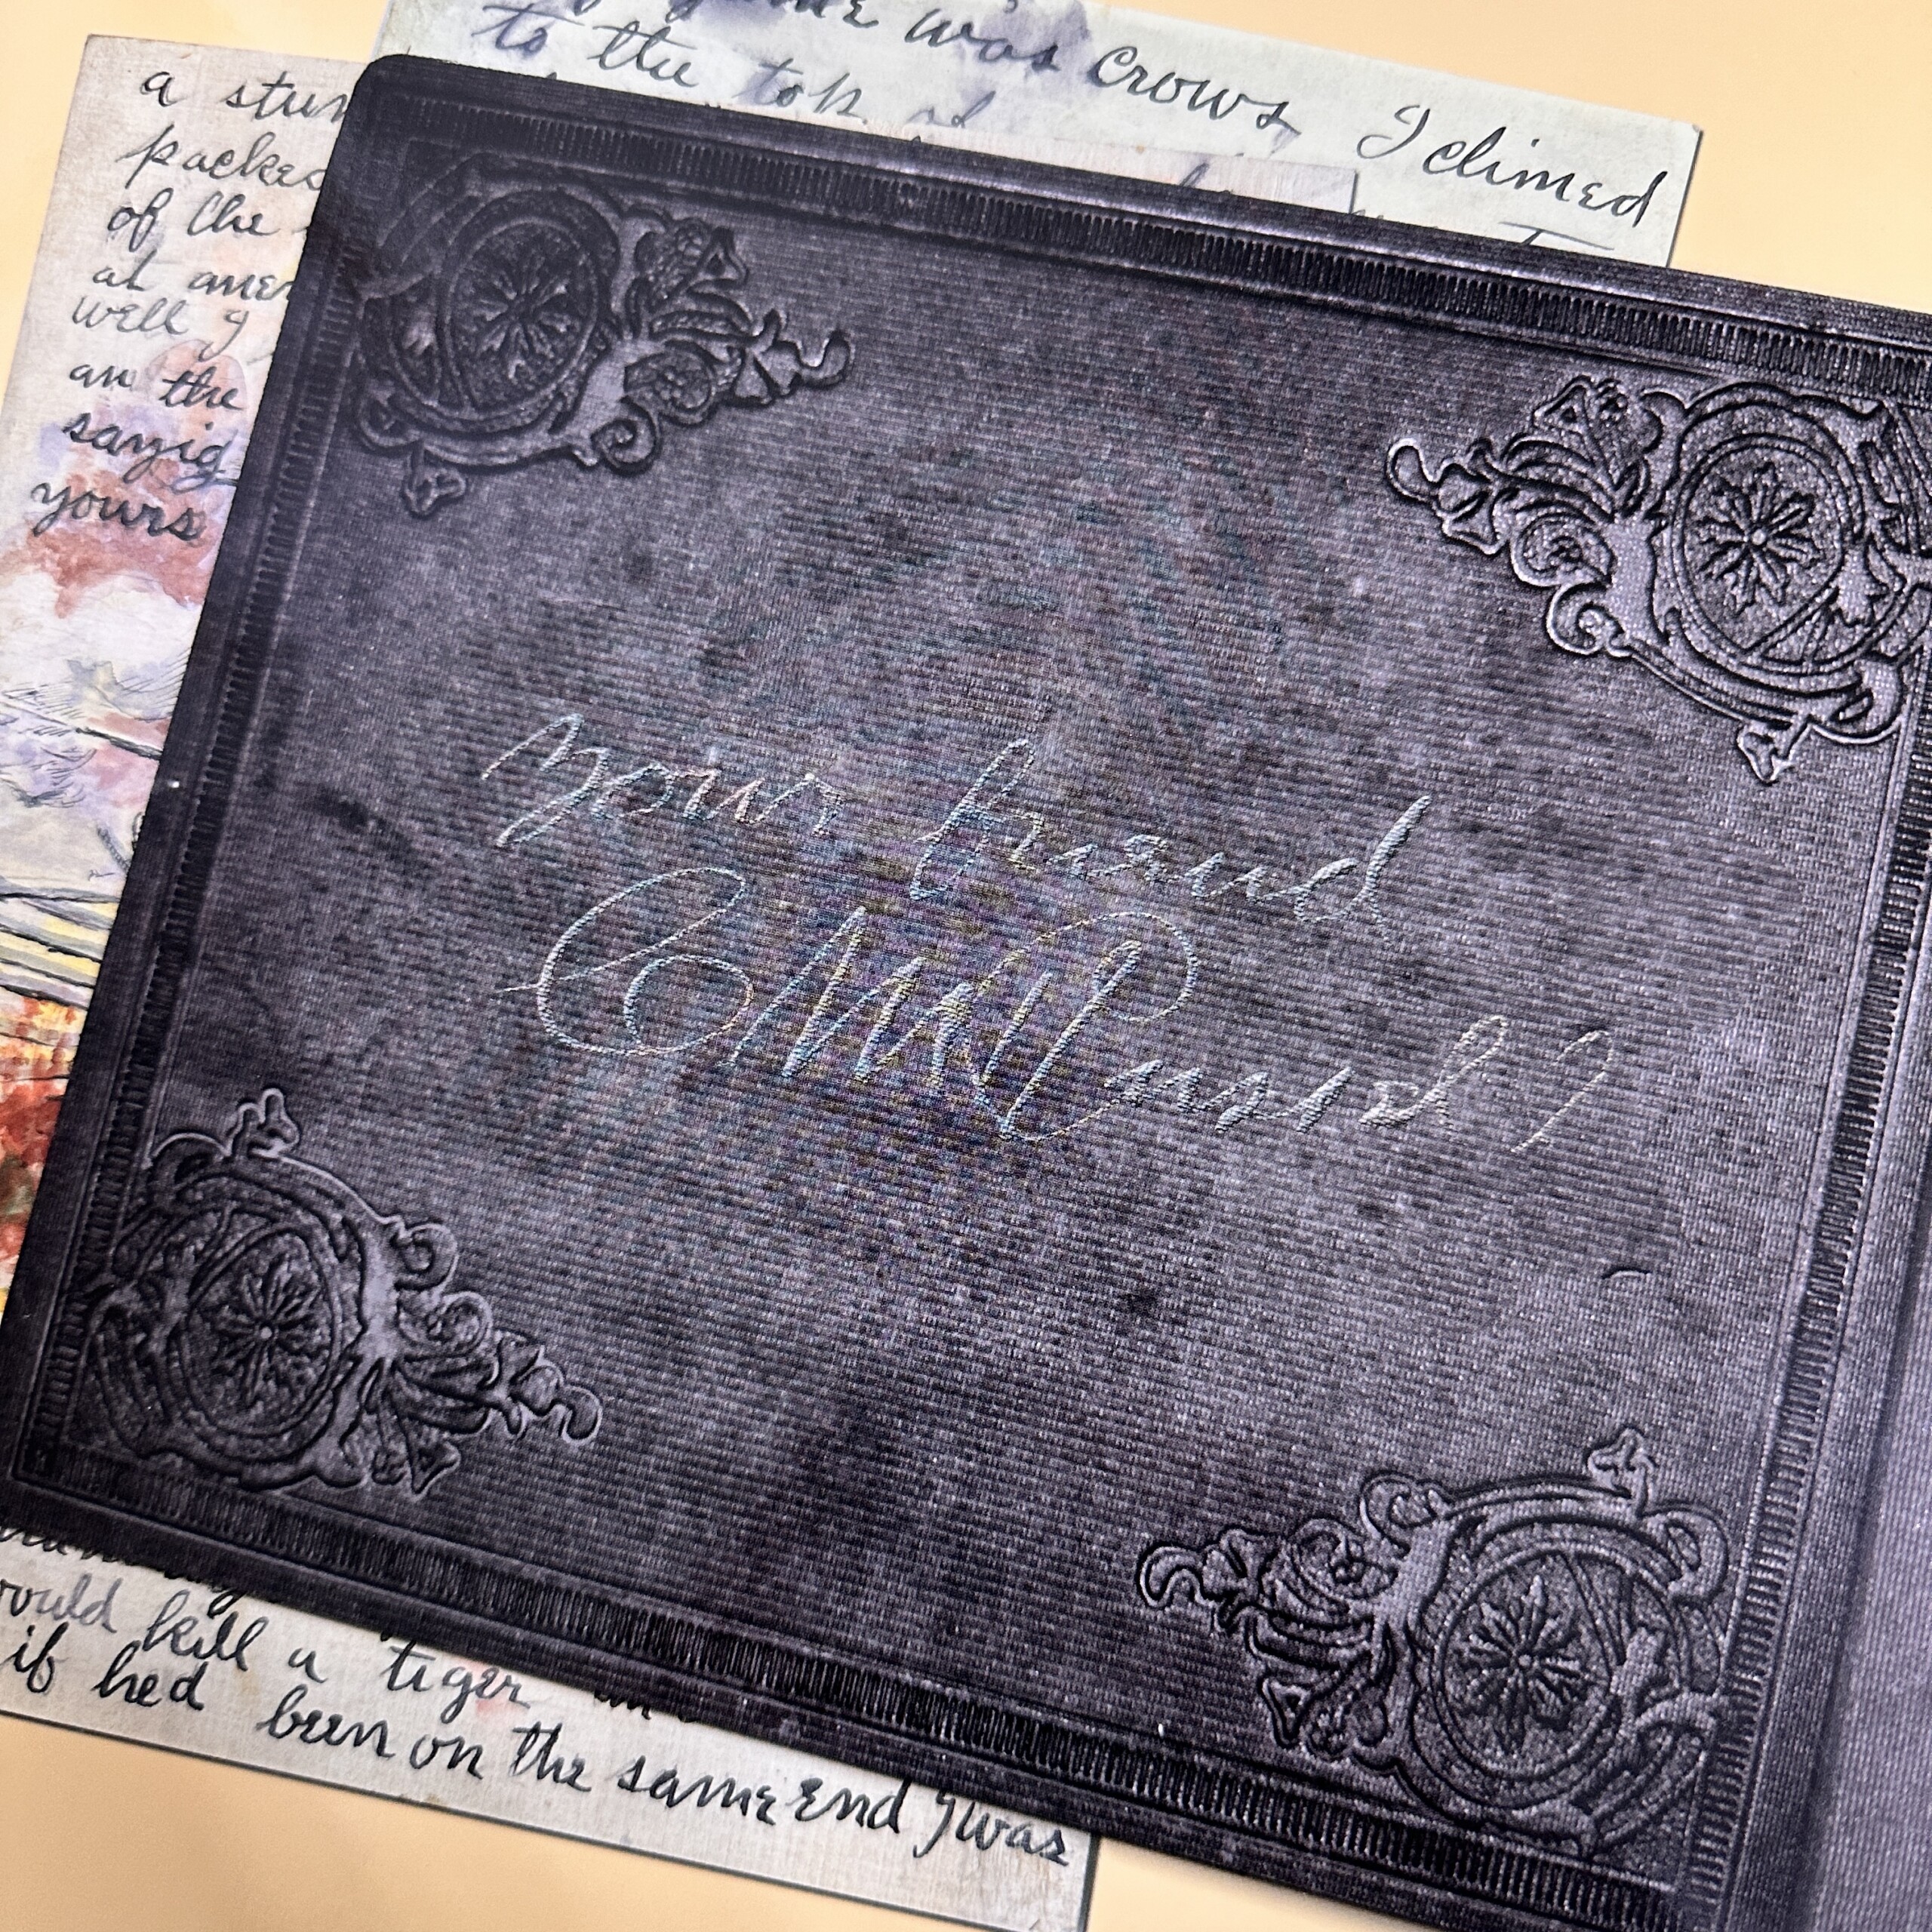 was Crows I climed
to the top of
a
packes
of the
at
well I
an the
sayig
yours
your friend
CM Russell
would kill a tiger
if hed been on the same end I was